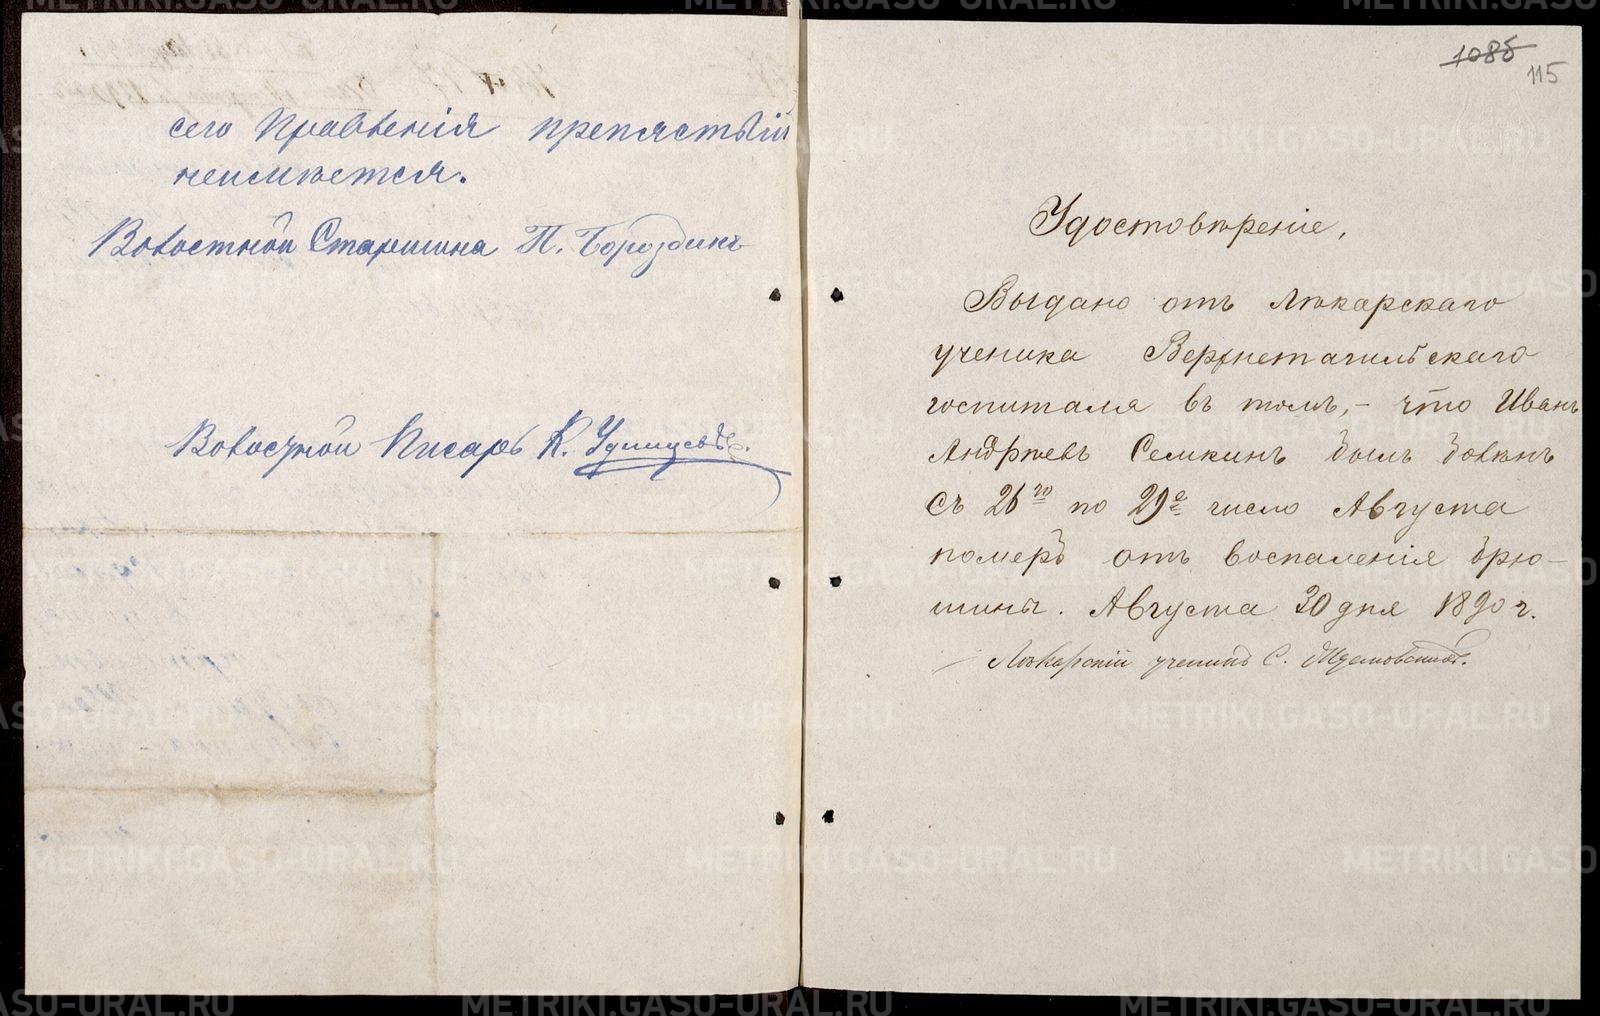 сего Правленія препятствій
неимѣется.
Волостной Старшина П. Бороздинъ
Волостной Писарь К.
1085
115
Удостовѣреніе,
Выдано отъ Лѣкарскаго
ученика Верхнетагильскаго
госпиталя въ томъ, – что Иванъ
Андрѣевъ Семкинъ былъ болѣнъ
Съ 26го по 29е число Августа
померъ отъ воспаленія брю-
шины. Августа 30 дня 1890 г.
Лѣкарскій ученикъ С.
METRIKI.GASO-URAL.RU